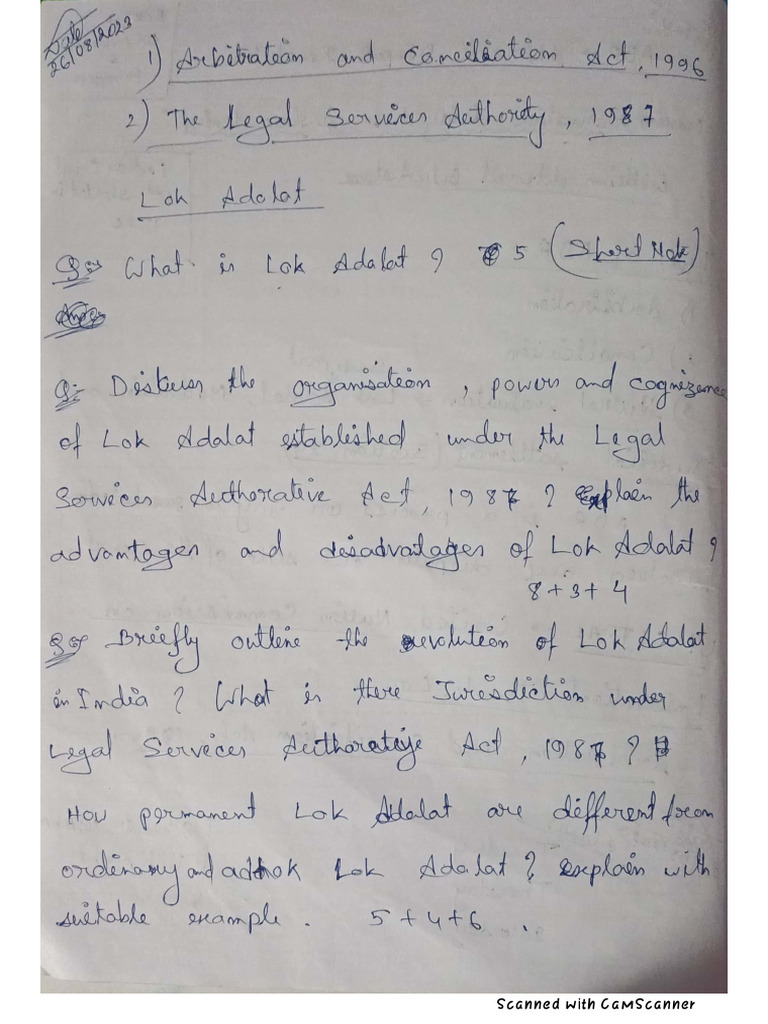 Date
26/08/2023
1) Arbitration and Conciliation Act, 1996
2) The Legal Services Authority, 1987
Lok Adalat
Q:- What is Lok Adalat ? 5 (Short Note)
Q:- Diskuss the organisation, powers and cognizence
of Lok Adalat established under the Legal
Services Authorative Act, 1987 ? Explain the
advantages and disadvatages of Lok Adalat ?
8+3+4
Q:- Briefly outline the evolution of Lok Adalat
in India ? What is there Jurisdiction under
Legal Services Authorative Act, 1987 ?
How permanent Lok Adalat are different from
ordinary and adhok Lok Adalat ? Explain with
suitable example. 5+4+6.
Scanned with CamScanner